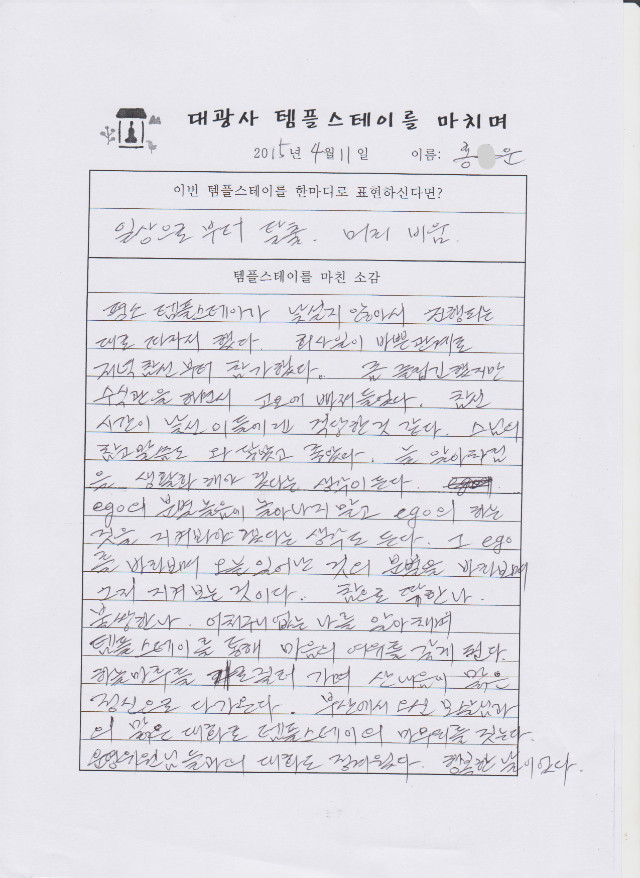 대광사 템플스테이를 마치며
2015년 4월 11일 이름: 홍 운
이번 템플스테이를 한마디로 표현하신다면?
일상으로부터 탈출. 머리 비움.
템플스테이를 마친 소감
평소 템플스테이가 낯설지 않아서 진행되는
대로 따라서 했다. 회사일이 바쁜관계로
저녁 참선부터 참가했다. 좀 졸립긴 했지만
수식관을 하면서 고요에 빠져들었다. 참선
시간이 낯선 이들에겐 적당한것 같다. 스님의
말씀도 와 닿았고 좋았다. 늘 알아차림
을 생활화 해야 겠다는 생각이 든다.
ego의 분별놀음에 놀아나지 말고 ego의 하는
짓을 지켜봐야 겠다는 생각도 든다. 그 ego
를 바라보며 오늘 일어난 것의 분별을 바라보며
그저 지켜보는 것이다. 참으로 딱한 나.
불쌍한 나. 어처구니없는 나를 알아채며
템플스테이를 통해 마음의 여유를 갖게 된다.
하늘마루를 걸어가며 산내음이 맑은
정신으로 다가온다. 부산에서 오신 보살님과
의 맑은 대화로 템플스테이의 마무리를 짓는다.
운영위원님들과의 대화도 정겨웠다. 행복한 날이었다.